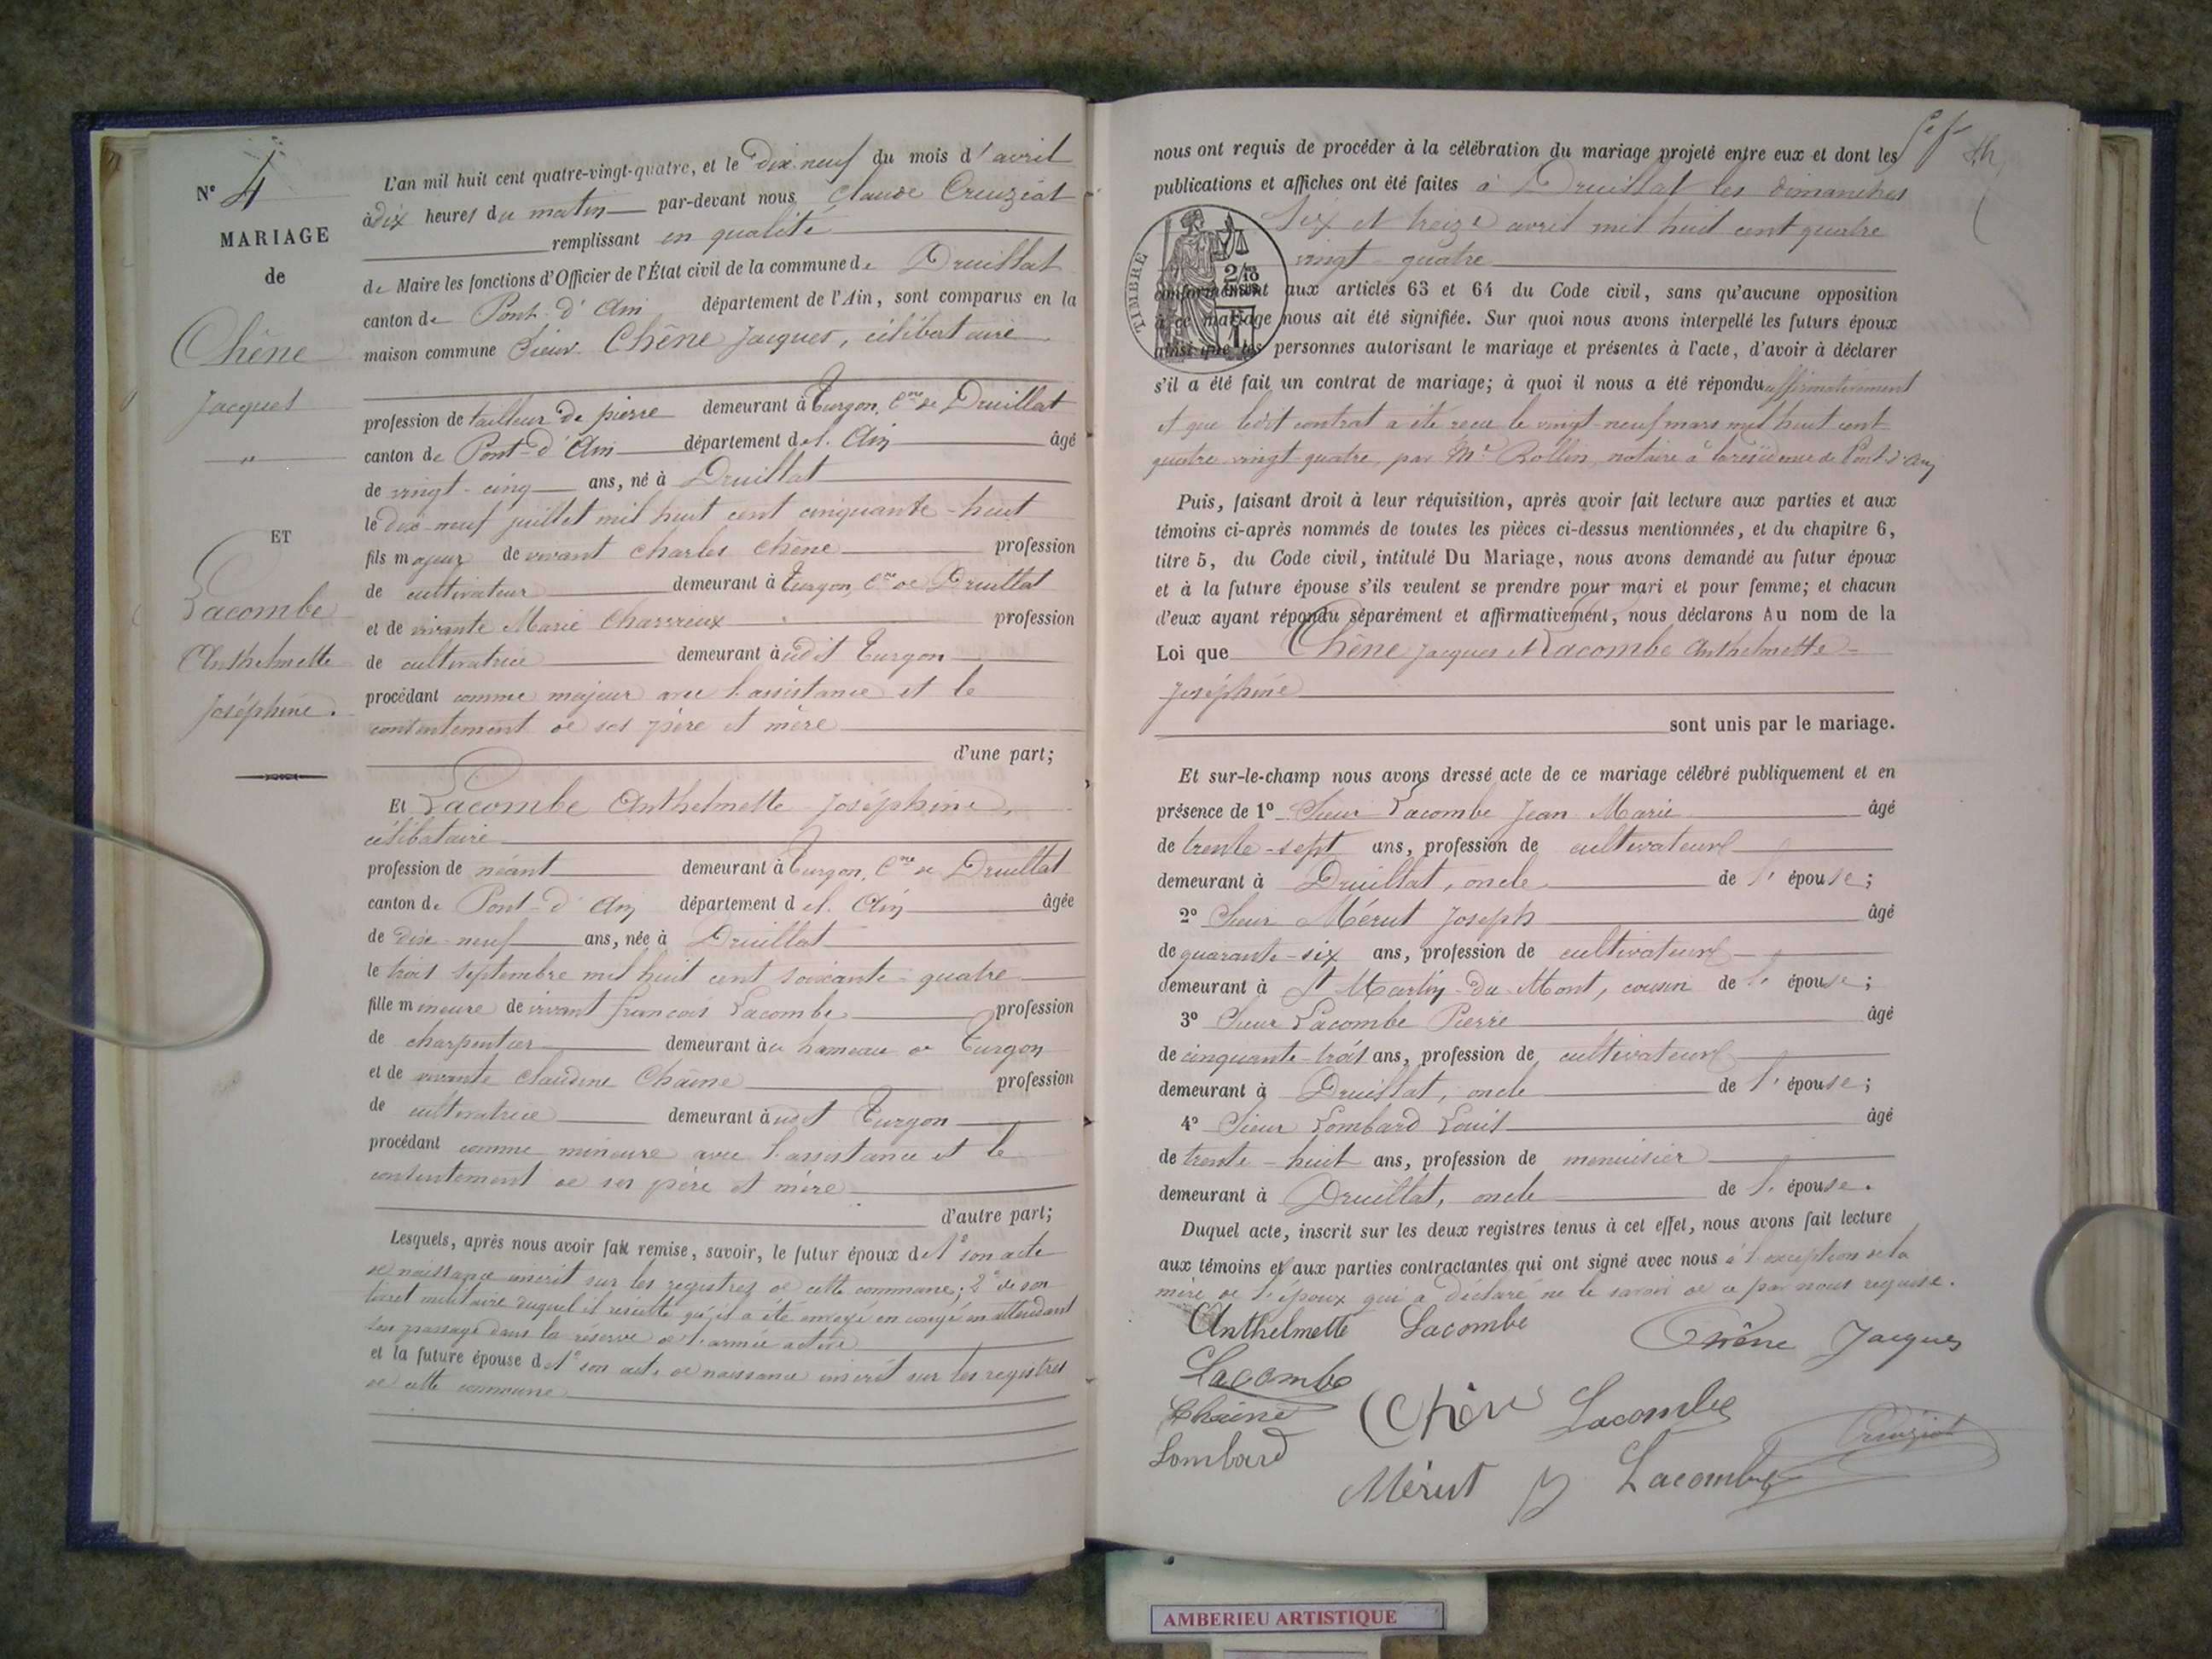 N° 4
MARIAGE
de
Chêne
Jacques
"
ET
Lacombe
Anthelmette
Joséphine.
L'an mil huit cent quatre-vingt-quatre, et le dix neuf du mois d'avril
à dix heures du matin par-devant nous Claude Creuziat
remplissant en qualité
de Maire les fonctions d'Officier de l'État civil de la commune de Druillat
canton de Pont-d'Ain département de l'Ain, sont comparus en la
maison commune Sieur Chêne Jacques, célibataire
profession de tailleur de pierre demeurant à Turgon, Cne de Druillat
canton de Pont-d'Ain département del. Ain âgé
de vingt-cinq ans, né à Druillat
le dix-neuf juillet mil huit cent cinquante-huit
fils majeur de vivant Charles Chêne profession
de cultivateur demeurant à Turgon, Cne de Druillat
et de vivante Marie Charvieux profession
de cultivatrice demeurant àudit Turgon
procédant comme majeur avec l'assistance et le
consentement de ses père et mère
d'une part;
Et Lacombe Anthelmette Joséphine,
célibataire
profession de néant demeurant à Turgon, Cne de Druillat
canton de Pont-d'Ain département del. Ain âgée
de dix-neuf ans, née à Druillat
le trois septembre mil huit cent soixante-quatre
fille mineure de vivant françois Lacombe profession
de charpentier demeurant àu hameau de Turgon
et de vivante Claudine Chaîne profession
de cultivatrice demeurant àudit Turgon
procédant comme mineure avec l'assistance et le
consentement de ses père et mère
d'autre part;
Lesquels, après nous avoir fait remise, savoir, le futur époux de 1° son acte
de naissance inscrit sur les registres de cette commune; 2° de son
livret militaire duquel il résulte qu'il a été envoyé en congé en attendant
son passage dans la réserve de l'armée active
et la future épouse de 1° son acte de naissance inscrit sur les registres
de cette commune
nous ont requis de procéder à la célébration du mariage projeté entre eux et dont les
publications et affiches ont été faites à Druillat les dimanches
six et treize avril mil huit cent quatre
vingt-quatre
TIMBRE
conformément aux articles 63 et 64 du Code civil, sans qu'aucune opposition
à ce mariage nous ait été signifiée. Sur quoi nous avons interpellé les futurs époux
ainsi que les personnes autorisant le mariage et présentes à l'acte, d'avoir à déclarer
s'il a été fait un contrat de mariage; à quoi il nous a été répondu affirmativement
et que ledit contrat a été reçu le vingt-neuf mars mil huit cent
quatre vingt quatre, par Me Rollin, notaire à la résidence de Pont-d'Ain
Puis, faisant droit à leur réquisition, après avoir fait lecture aux parties et aux
témoins ci-après nommés de toutes les pièces ci-dessus mentionnées, et du chapitre 6,
titre 5, du Code civil, intitulé Du Mariage, nous avons demandé au futur époux
et à la future épouse s'ils veulent se prendre pour mari et pour femme; et chacun
d'eux ayant répondu séparément et affirmativement, nous déclarons Au nom de la
Loi que Chêne Jacques et Lacombe Anthelmette-
Joséphine
sont unis par le mariage.
Et sur-le-champ nous avons dressé acte de ce mariage célébré publiquement et en
présence de 1° Sieur Lacombe Jean Marie âgé
de trente-sept ans, profession de cultivateur
demeurant à Druillat, oncle de l'épouse;
2° Sieur Mérut Joseph âgé
de quarante-six ans, profession de cultivateur
demeurant à St Martin-du-Mont, cousin de l'épouse;
3° Sieur Lacombe Pierre âgé
de cinquante-trois ans, profession de cultivateur
demeurant à Druillat, oncle de l'épouse;
4° Sieur Lombard Louis âgé
de trente-huit ans, profession de menuisier
demeurant à Druillat, oncle de l'épouse.
Duquel acte, inscrit sur les deux registres tenus à cet effet, nous avons fait lecture
aux témoins et aux parties contractantes qui ont signé avec nous à l'exception de la
mère de l'époux qui a déclaré ne le savoir de ce par nous requise.
Anthelmette Lacombe Chêne Jacques
Lacombe
Chaine Chêne Lacombe
Lombard Creuziat
Mérut J Lacombe
AMBERIEU ARTISTIQUE